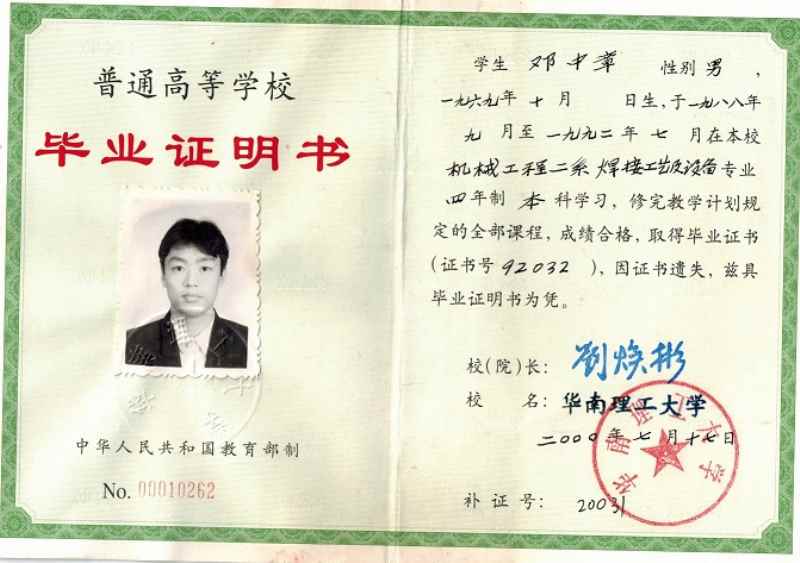 普通高等学校
毕业证明书
中华人民共和国教育部制
No. 00010262
学生 邓中华 性别 男，
一九六九年 十 月 日生，于一九八八年
九 月至 一九九二 年 七 月在本校
机械工程二系 焊接工艺及设备 专业
四年制 本 科学习，修完教学计划规
定的全部课程，成绩合格，取得毕业证书
(证书号 92032 )，因证书遗失，兹具
毕业证明书为凭。
校(院)长： 刘焕彬
校 名： 华南理工大学
二000年七月十七日
华南理工大学
补证号： 20031